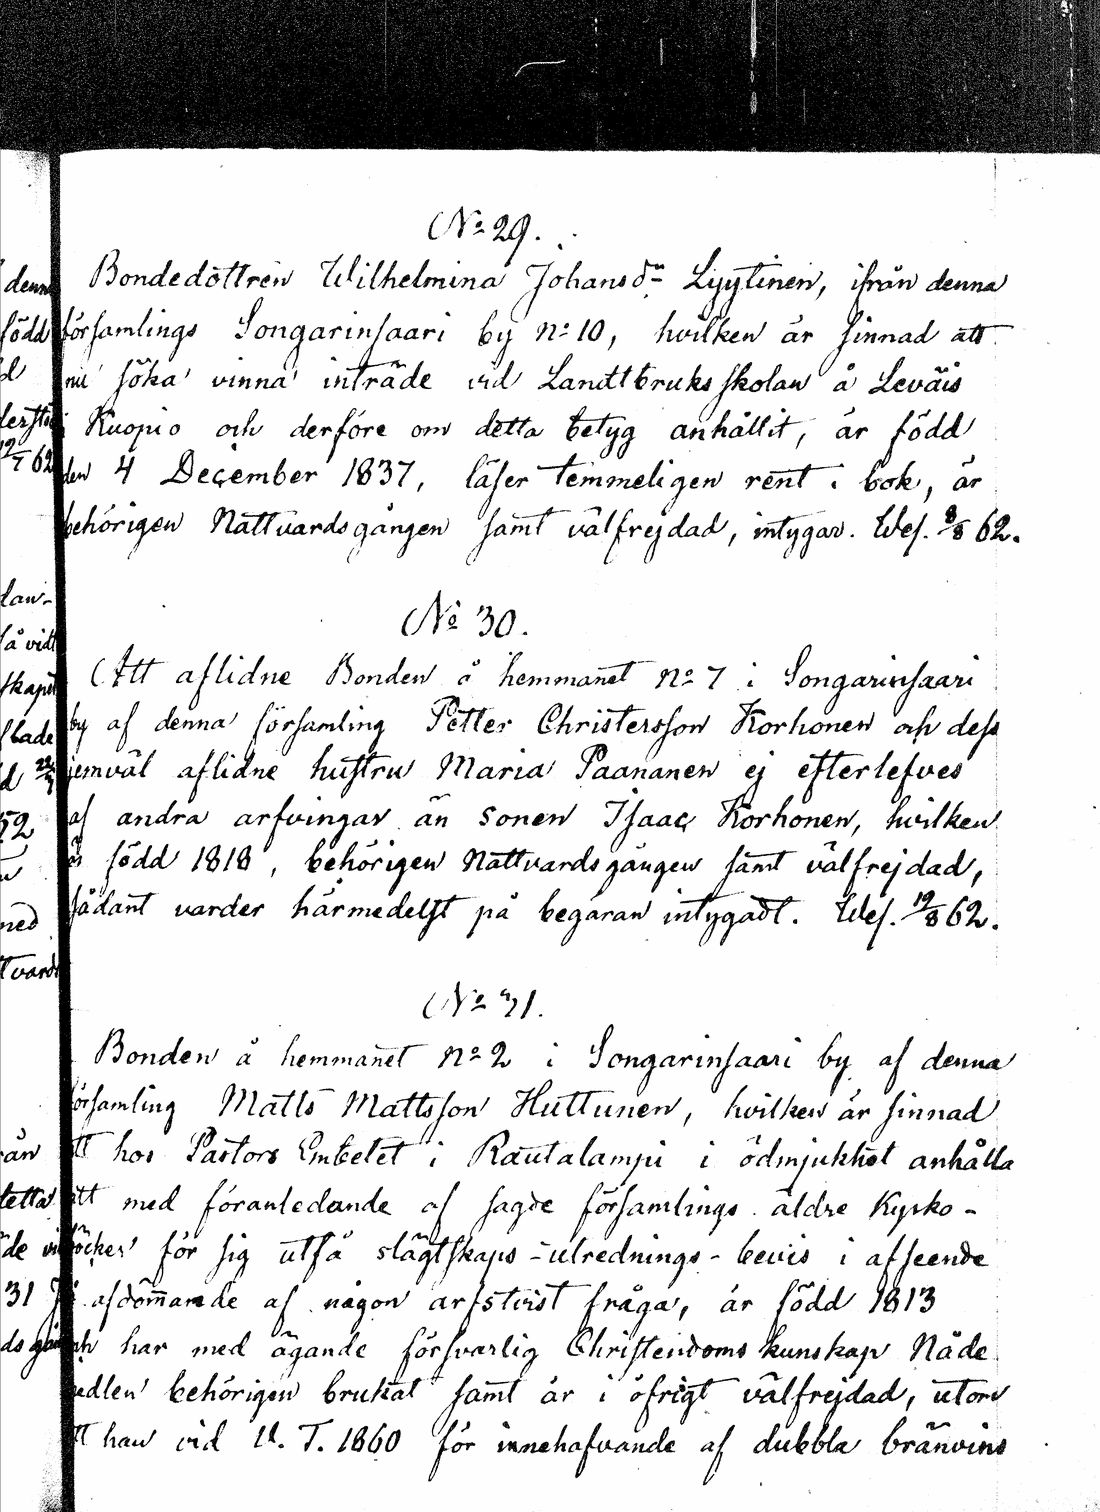 No 29.
Bondedottren Wilhelmina Johansdr Lyytinen, ifrån denna
församlings Songarinsaari by No 10, hvilken är sinnad att
nu söka vinna inträde vid Landtbruks skolan å Leväis
i Kuopio och derföre om detta betyg anhållit, är född
den 4 December 1837, läser temmeligen rent i bok, är
behörigen Nattvardsgången samt välfrejdad, intygar. Wes. 8/8 62.
No 30.
Att aflidne Bonden å hemmanet No 7 i Songarinsaari
by af denna församling Petter Christersson Korhonen och dess
jemväl aflidne hustru Maria Paananen ej efterlefves
af andra arfvingar än sonen Isaac Korhonen, hvilken
är född 1818, behörigen Nattvardsgången samt välfrejdad,
sådant varder härmedelst på begäran intygadt. Wes. 19/8 62.
No 31.
Bonden å hemmanet No 2 i Songarinsaari by af denna
församling Matts Mattsson Huttunen, hvilken är sinnad
att hos Pastors Embetet i Rautalampi i ödmjukhet anhålla
att med föranledande af sagde församlings äldre Kyrko-
böcker för sig utfå slägtskaps-utrednings-bevis i afseende
å afdömmande af någon arfstvist fråga, är född 1813
och har med ägande försvarlig Christendoms kunskap Nåde
medlen behörigen brukat samt är i öfrigt välfrejdad, utom
att han vid U. T. 1860 för innehafvande af dubbla bränvins